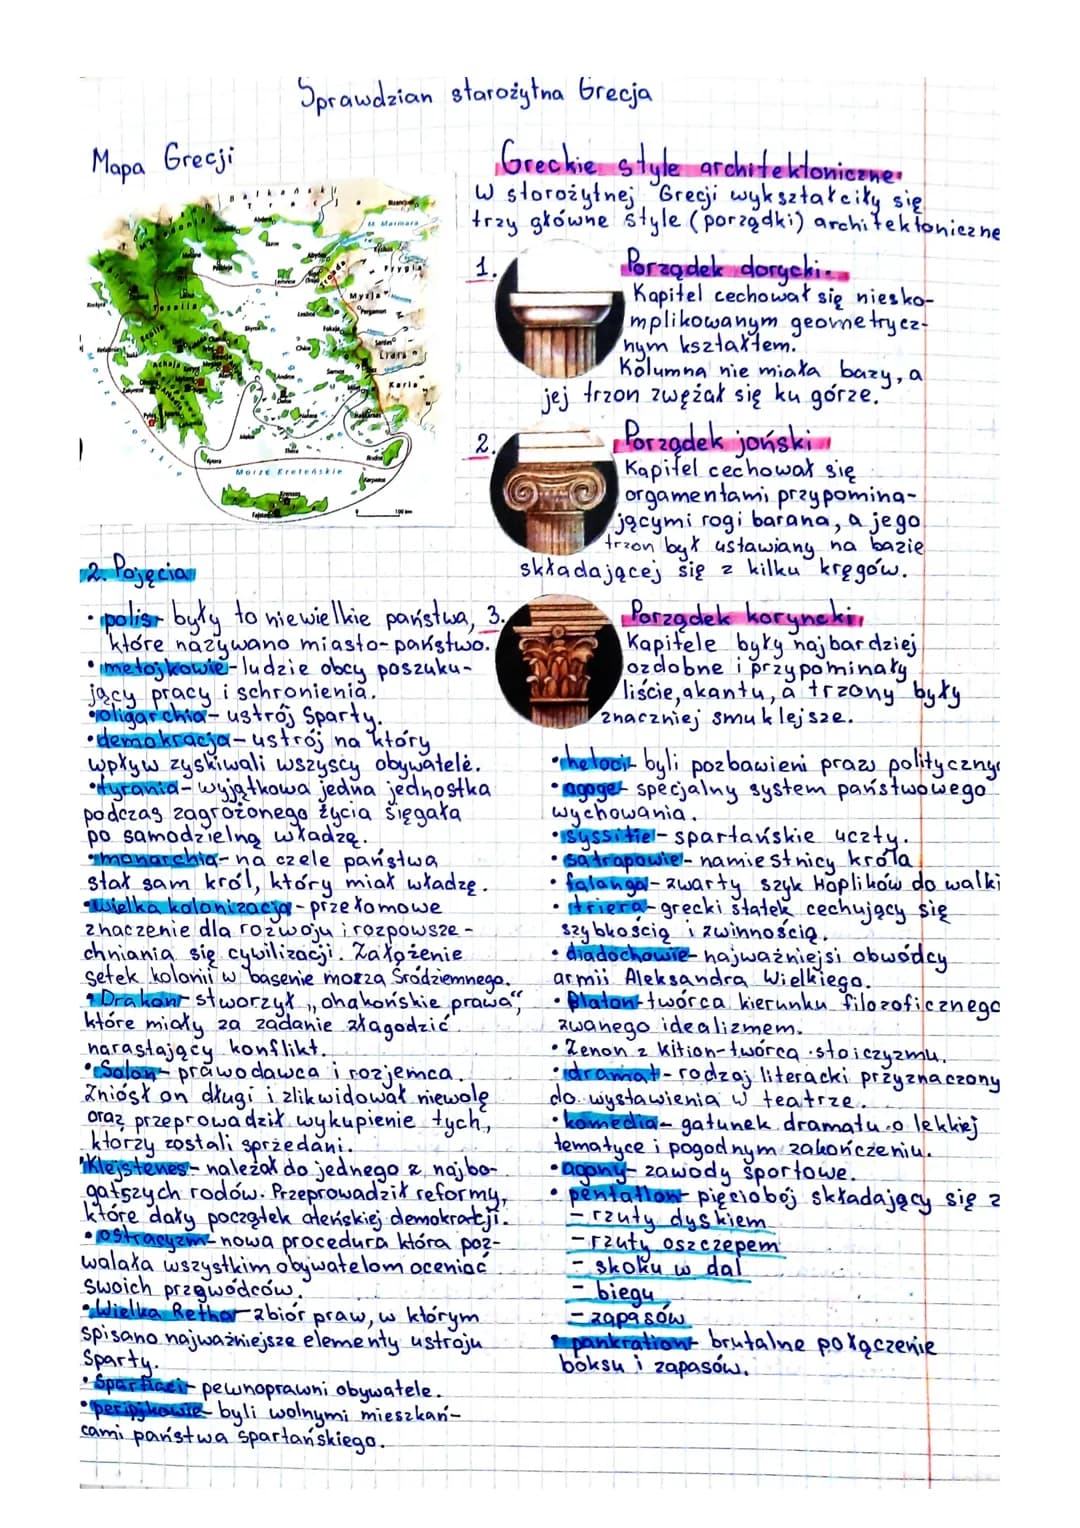 Sprawdzian starożytna Grecja
Mapa Grecji
Morze Kreteńskie
Achaja
Myzja
Frygia
Lidia
Karia
M. Marmara
100 km
2. Pojęcia
• polis - były to niewielkie państwa,
które nazywano miasto-państwo.
• metojkowie - ludzie obcy poszuku-
jący pracy i schronienia.
• oligarchia - ustrój Sparty.
• demokracja - ustrój na który
wpływ zyskiwali wszyscy obywatele.
• tyrania - wyjątkowa jedna jednostka
podczas zagrożonego życia sięgała
po samodzielną władzę.
• monarchia - na czele państwa
stał sam król, który miał władzę.
• wielka kolonizacja - przełomowe
znaczenie dla rozwoju i rozpowsze-
chniania się cywilizacji. Założenie
setek kolonii w basenie morza Śródziemnego.
• Drakon - stworzył „ohakońskie prawa",
które miały za zadanie złagodzić
narastający konflikt.
• Solon - prawodawca i rozjemca.
Zniósł on długi i zlikwidował niewolę
oraz przeprowadził wykupienie tych,
którzy zostali sprzedani.
• Klejstenes - należał do jednego z najbo-
gatszych rodów. Przeprowadził reformy,
które dały początek ateńskiej demokracji.
• ostracyzm - nowa procedura która poz-
walała wszystkim obywatelom oceniać
swoich przywódców.
• Wielka Rethra - zbiór praw, w którym
spisano najważniejsze elementy ustroju
Sparty.
• Spartiaci - pewnoprawni obywatele.
• periojkowie - byli wolnymi mieszkań-
cami państwa spartańskiego.
Greckie style architektoniczne
W starożytnej Grecji wykształciły się
trzy główne style (porządki) architektoniczne
1. Porządek dorycki
Kapitel cechował się niesko-
mplikowanym geometrycz-
nym kształtem.
Kolumna nie miała bazy, a
jej trzon zwężał się ku górze.
2. Porządek joński
Kapitel cechował się
orgamentami przypomina-
jącymi rogi barana, a jego
trzon był ustawiany na bazie
składającej się z kilku kręgów.
3. Porządek koryncki
Kapitele były najbardziej
ozdobne i przypominały
liście, akantu, a trzony były
znaczniej smuklejsze.
• heloci - byli pozbawieni praw politycznyc
• agoge - specjalny system państwowego
wychowania.
• syssitie - spartańskie uczty.
• satrapowie - namiestnicy króla
• falanga - zwarty szyk Hoplików do walki
• triera - grecki statek cechujący się
szybkością i zwinnością.
• diadochowie - najważniejsi obwódcy
armii Aleksandra Wielkiego.
• Platon - twórca kierunku filozoficznego
zwanego idealizmem.
• Zenon z Kition - twórca stoiczyzmu.
• dramat - rodzaj literacki przyznaczony
do wystawienia w teatrze.
• komedia - gatunek dramatu o lekkiej
tematyce i pogodnym zakończeniu.
• agony - zawody sportowe.
• pentatlon - pięciobój składający się z
- rzuty dyskiem
- rzuty oszczepem
- skoku w dal
- biegu
- zapasów
• pankration - brutalne połączenie
boksu i zapasów.